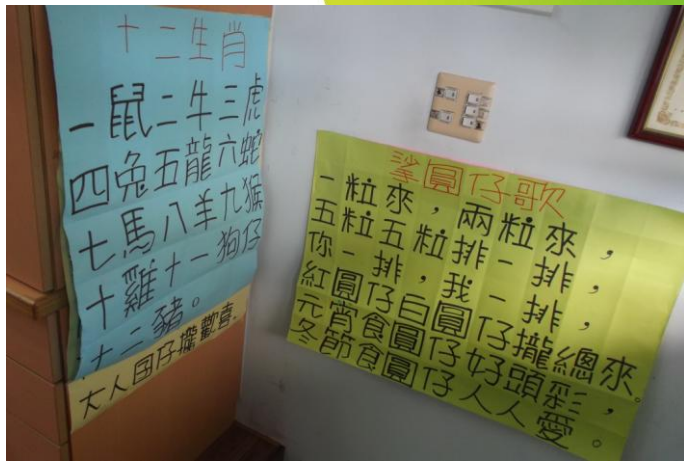 十二生肖
一鼠二牛三虎
四兔五龍六蛇
七馬八羊九猴
十雞十一狗仔
十二豬。
大人囝仔攏歡喜.
挲圓仔歌
一粒來，兩粒來，
五粒五粒排一排，
你一排，我一排，
紅圓仔白圓仔攏總來。
元宵食圓仔好頭彩，
冬節食圓仔人人愛。